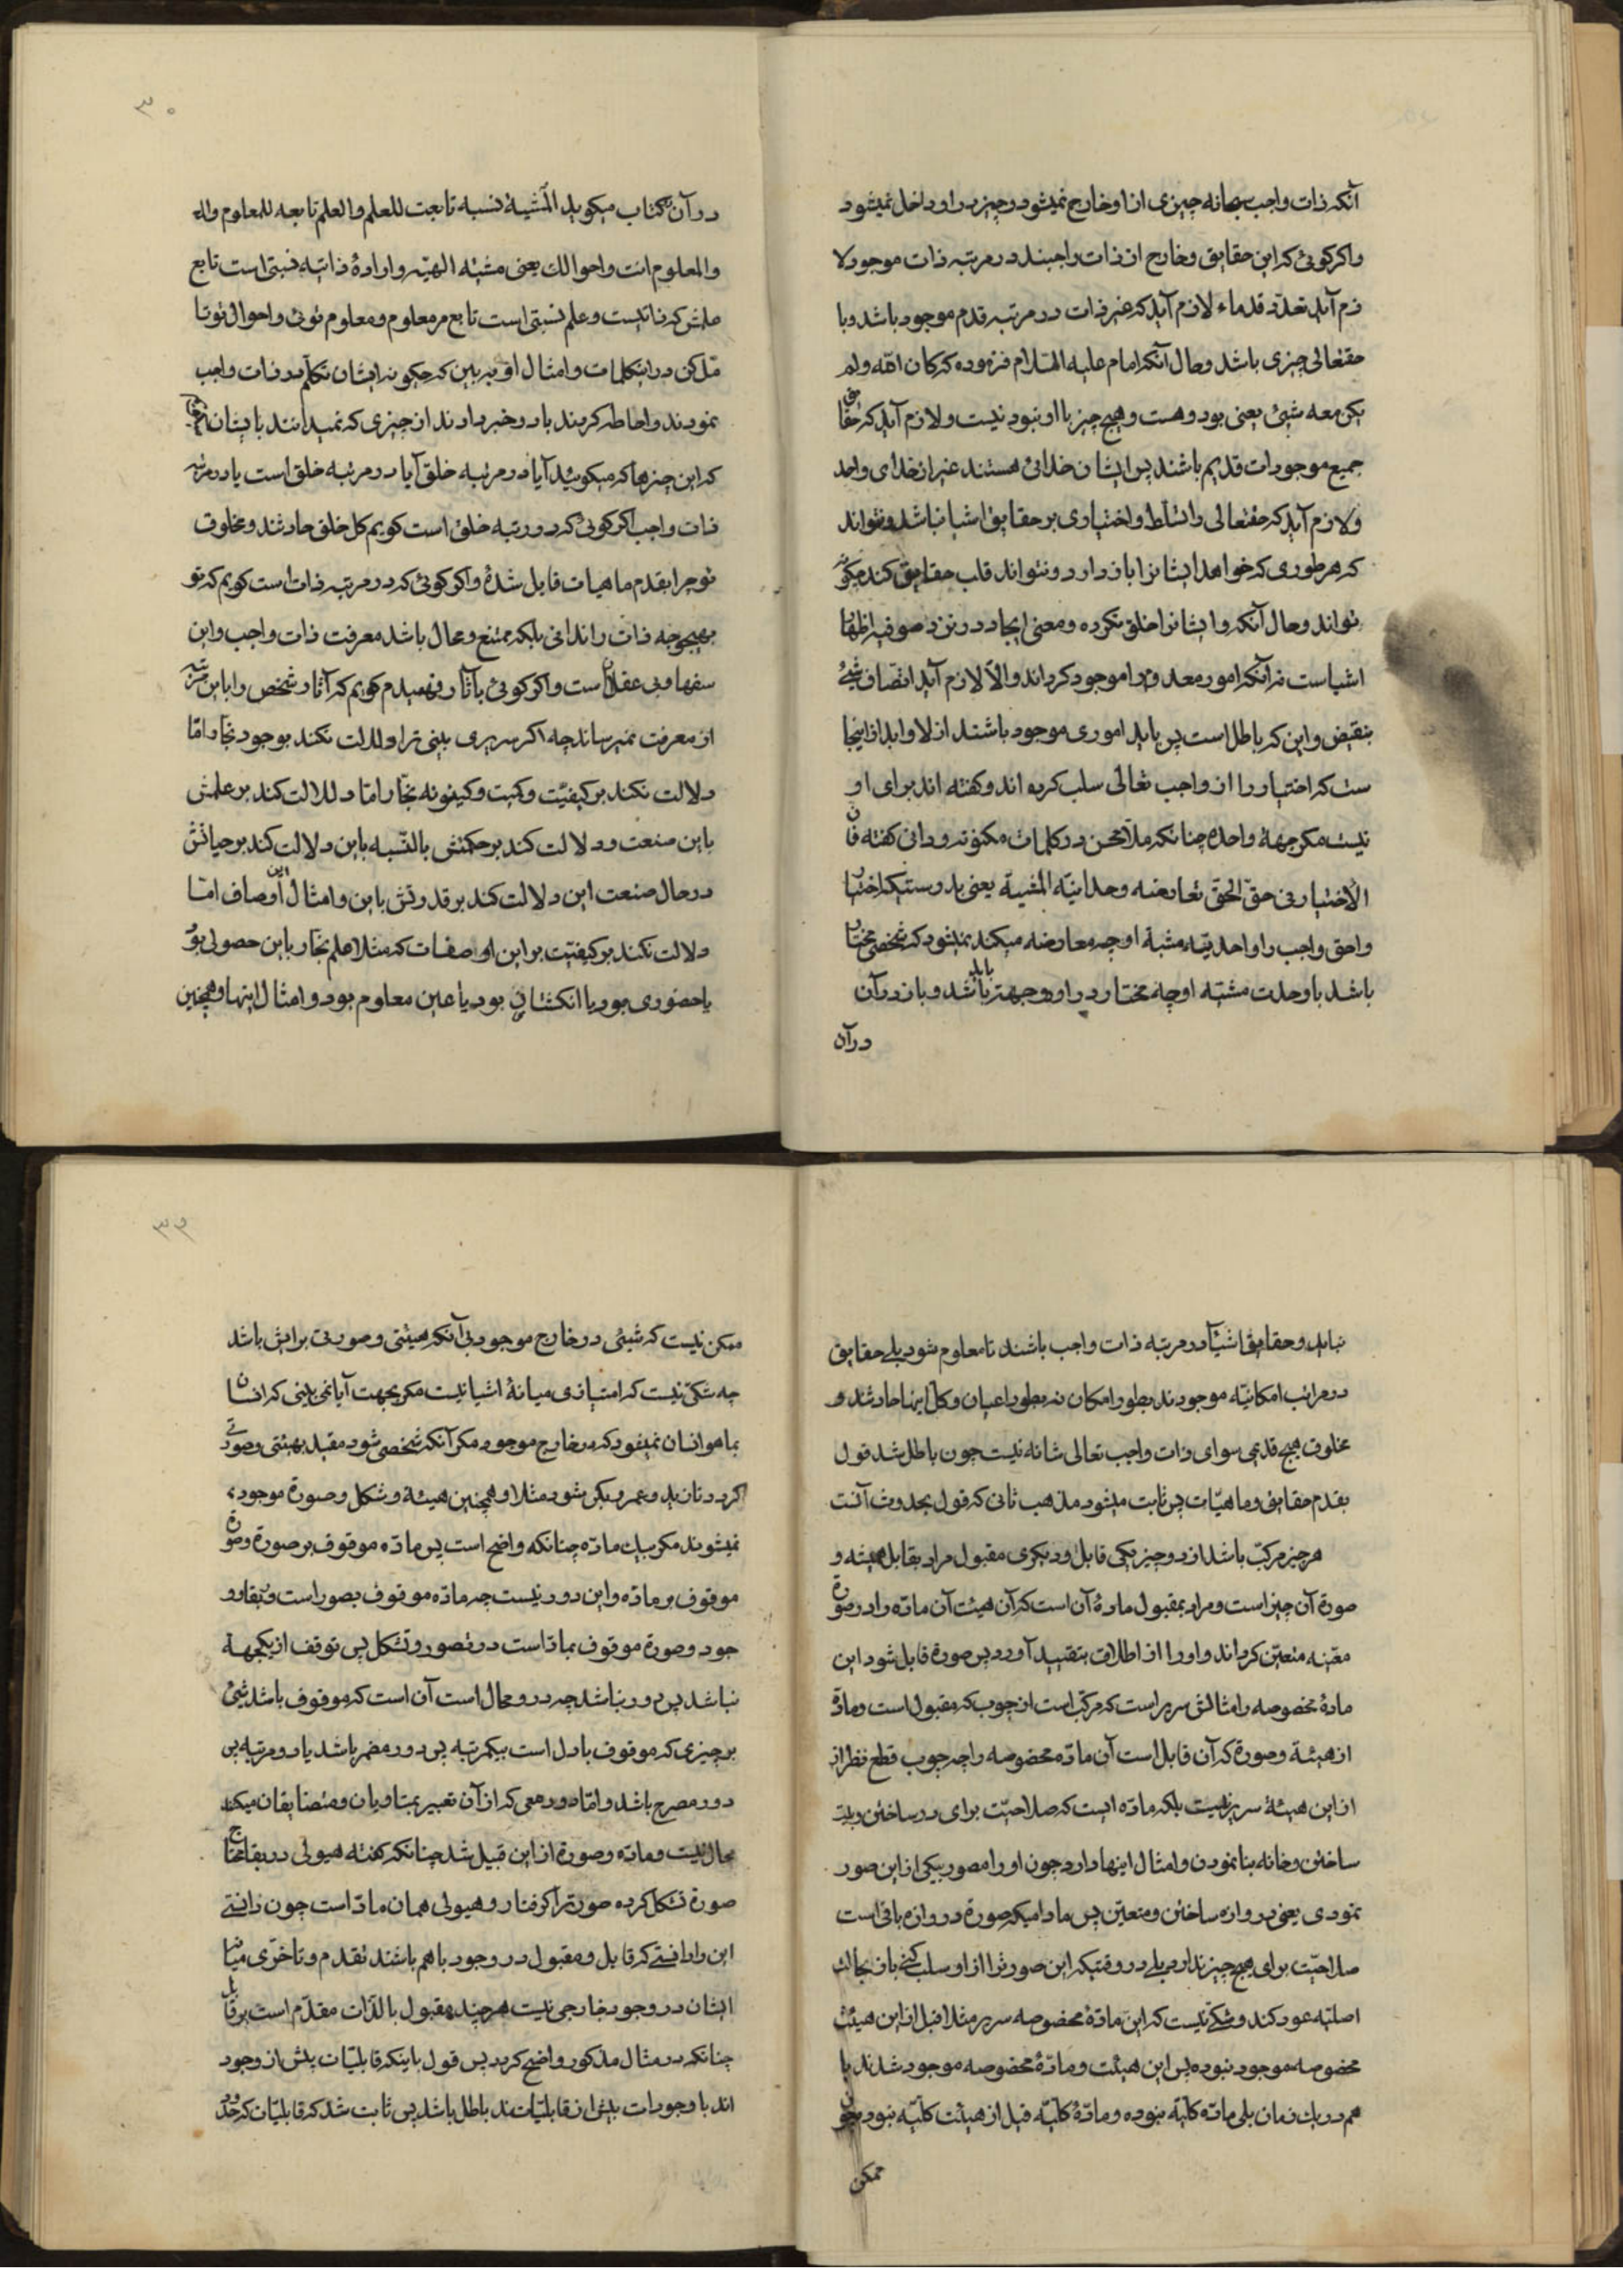 آنکه ذات واجب سبحانه چیزی از او خارج نمیشود و چیز در او داخل نمیشود
واکر کوئی که این حقایق و خارج از ذات واجبند در مرتبه ذات موجود لا
زم آید تعدّد قدماء لازم آید که غیر ذات در مرتبه قدم موجود باشد و با
حقتعالی چیزی باشد و حال آنکه امام علیه السّلام فرموده که کان الله ولم
یکن معه شیئ یعنی بود و هست و هیچ چیز با او نبود نیست و لازم آید که حقایق
جمیع موجودات قدیم باشند پس ایشان خدائی هستند غیر از خدای واحد
ولازم آید که حقتعالی را تسلّط و اختیاری بر حقایق اشیا نباشد و نتواند
که هر طوری که خواهد ایشانرا باز دارد و نتواند قلب حقایق کند چکونه
تواند و حال آنکه وا یشانرا خلق نکرده و معنی ایجاد در نزد صوفیه اظهار
اشیاست نه آنکه امور معدومه را موجود کرداند والّا لازم آید اتّصاف شیئ
بنقیض و این که باطل است پس باید اموری موجود باشند ازلا وابدا از اینجا
ست که اختیار را از واجب تعالی سلب کرده اند و کفته اند برای او
نیست مکر جهة واحده چنانکه ملّا محسن در کلمات مکنونه در دانی کفته فان
الاختیار فی حقّ الحقّ تعارضه وحدانیّه المشیة یعنی بدرستیکه اختیار
واحق واجب را واحدیّت مشیة او چه معارضه میکند نمیشود که شخصی مختار
باشد با وحدت مشیّه او چه مختار در او دو جهتر باید باشد و باز در آن
در آن
۳۰
در آن کتاب میکوید المشیة نسبه تابعت للعلم والعلم تابعه للمعلوم والـ
والمعلوم انت واحوالک یعنی مشیّه الهیّه و ارادهٔ ذاتیّه نسبتی است تابع
علمش که ذاتیست و علم نسبتی است تابع مر معلوم و معلوم توئی و احوال تو تا
مّل کن در اینکلمات و امثال او ببین که چکونه ایشان تکلّم در ذات واجب
نمودند و احاطه کردند باو و خبر دادند از چیزی که نمیدانند بایشان
که این چیزها که میکوئید آیا در مرتبه خلق آیا در مرتبه خلق است یا در مرتبه
ذات واجب اکر کوئی که در رتبه خلق است کویم کل خلق حادثند و مخلوق
تو چرا بقدم ماهیات قایل شدهٔ واکر کوئی که در مرتبه ذات است کویم که تو
بهیچوجه ذات را ندانی بلکه ممتنع و محال باشد معرفت ذات واجب و این
سفها و بی عقلان است و اکر کوئی بآثار فهمیدم کویم که آثار شخص را باین مرتبه
از معرفت نمیرساند چه اکر سریری بینی ترا دلالت نکند بوجود نجّار امّا
دلالت نکند بر کیفیّت و کیت و کیفونه نجّار امّا دلالت کند بر علمش
باین صنعت و دلالت کند بر حکمتش بالنّسبه باین دلالت کند بر حیاتش
در حال صنعت این دلالت کند بر قدرتش باین و امثال این اوصاف امّا
دلالت نکند بر کیفیّت بر این اوصفات که مثلا علم نجّار باین حصولی بود
یا حضوری بود یا انکشتان بود یا عین معلوم بود و امثال اینها و همچنین
نباید و حقایق اشیآ در مرتبه ذات واجب باشند تا معلوم شود بلے حقایق
در مراتب امکانیّه موجودند بطور امکان نه بطور اعیان و کل اینها حادثند و
مخلوق هیچ قدیمی سوای ذات واجب تعالی شانه نیست چون باطل شد قول
بقدم حقایق و ماهیّات پس ثابت میشود مذهب ثانی که قول بحدوث آنست
هر چیز مرکّب باشد از دو چیز یکی قابل و دیکری مقبول مراد بقابل هیئه و
صورة آن چیز است و مراد بمقبول مادهٔ آن است که آن هیئت آن مادّه را در صورة
معیّنه متعیّن کرداند و او را از اطلاق بتقیید آورد پس صورة قابل شود این
مادهٔ مخصوصه را مثالش سریر است که مرکّب است از چوب که مقبول است و مادّه
از هیئة و صورة که آن قابل است آن مادّه مخصوصه را چه چوب قطع نظر از
از این هیئة سریر نیست بلکه مادّه ایست که صلاحیّت برای در ساختن و بت
ساختن و خانه بنا نمودن و امثال اینها دارد چون او را مصور بیکی از این صور
نمودی یعنی دروازه ساختن و متعیّن پس مادامیکه صورة دروازه باقی است
صلاحیّت برای هیچ چیز ندارد بلے در وقتیکه این صورترا از او سلب کنے باز بحالت
اصلیّه عود کند و شکّے نیست که این مادّهٔ مخصوصه سریر مثلا قبل از این هیئت
مخصوصه موجود نبوده پس این هیئت و مادّهٔ مخصوصه موجود شدند با
هم در یک زمان بلی مادّه کلّیّه نبوده و مادّهٔ کلّیّه قبل از هیئت کلّیّه نبود چون
ممکن
۳۹
ممکن نیست که شیئی در خارج موجود بی آنکه هیئتی و صورتی برایش باشد
چه شکّی نیست که امتیازی میانهٔ اشیا نیست مکر بجهت آیا نمی بینی که انسان
بما هو انسان نمیشود که در خارج موجود مکر آنکه شخصی شود مقید بهیئتی و صورتی
کردد تا زید و عمرو بکر شود مثلا و همچنین هیئة و شکل و صورة موجود
نمیشوند مکر بیک مادّه چنانکه واضح است پس مادّه موقوف بر صورة و صورة
موقوف بر مادّه و این دور نیست چه مادّه موقوف بصور است در بقا و و
جود و صورة موقوف بمادّاست در تصور و تشکل پس توقف از یکجهة
نباشد پس دور نباشد چه دور محال است آن است که موقوف باشد شیئ
بر چیزی که موقوف باول است بیکمرتبه پس دور مضمر باشد یا دو مرتبه پس
دور مصرح باشد و امّا دور معی که از آن تعبیر بمتساویان و متضایفان میکنند
محال نیست و مادّه و صورة از این قبیل شد چنانکه کفته هیولی در بقا محتاج
صورة تشکل کرده صورترا کرفتار و هیولی همان مادّاست چون دانستے
این را دانستے که قابل و مقبول در وجود با هم باشند تقدم و تاخّری میان
ایشان در وجود خارجی نیست هر چند مقبول بالذّات مقدّم است بر قابل
چنانکه در مثال مذکور واضح کردید پس قول باینکه قابلیّات پیش از وجود
اند یا وجودات پیش از قابلیّات‌ند باطل باشد پس ثابت شد که قابلیّات که حدود